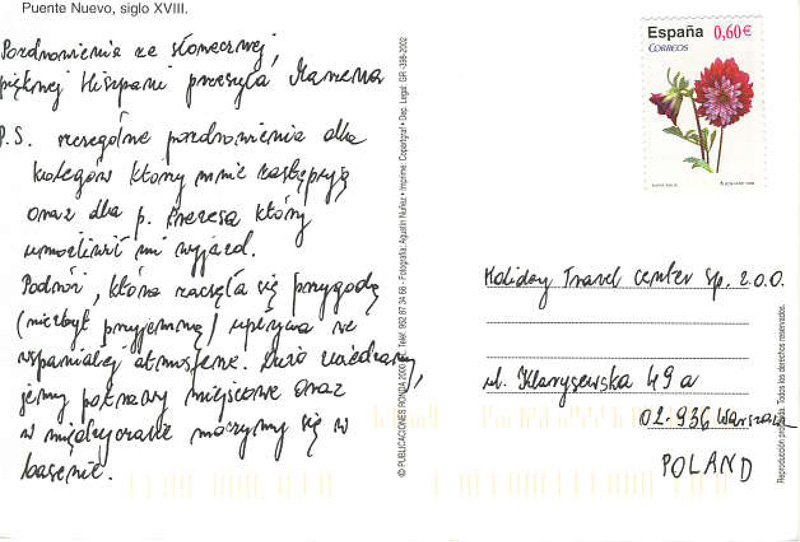 Puente Nuevo, siglo XVIII.
Pozdrowienia ze słonecznej,
pięknej Hiszpani przesyła Marzena
P.S. szczególne pozdrowienia dla
kolegów którzy mnie zastępują
oraz dla p. Prezesa który
umożliwił mi wyjazd.
Podróż, która zaczęła się przygodą
(niezbyt przyjemną) upływa we
wspaniałej atmosferze. Dużo zwiedzamy,
jemy potrawy miejscowe oraz
w międzyczasie moczymy się w
basenie.
© PUBLICACIONES RONDA 2000 Teléf. 952 87 34 66 - Fotografía: Agustín Núñez • Imprime: Copartgraf • Dep. Legal: GR -398-2002
España 0,60€
CORREOS
Holiday Travel Center sp. z.o.o.
ul. Klaryszewska 49a
02-936 Warszawa
POLAND
Reproducción prohibida. Todos los derechos reservados.